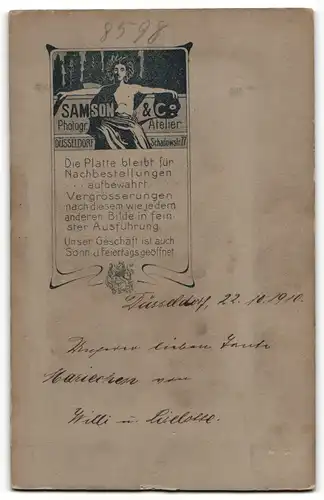 8598
SAMSON & Co.
Photogr. Atelier
DÜSSELDORF Schadowstr.
Die Platte bleibt für
Nachbestellungen
aufbewahrt.
Vergrösserungen
nach diesem wie jedem
anderen Bilde in fein-
ster Ausführung.
Unser Geschäft ist auch
Sonn u. Feiertags geöffnet
Düsseldorf, 22.10.1910.
Unserer lieben Tante
Mariechen von
Willi u. Liselotte.